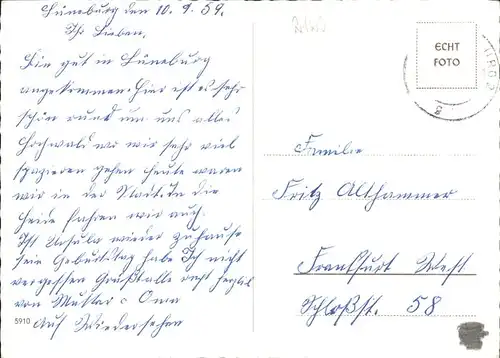 Lüneburg den 10.9.59.
Ihr Lieben,
Bin gut in Lüneburg
angekommen. Hier ist es sehr
schön rund um uns alles
Hochwald wo wir sehr viel
spazieren gehen heute waren
wir in der Stadt. In die
Heide fahren wir auch.
Ist Ursula wieder zuhause
sein Geburtstag habe Ich nicht
vergessen Grüßt alle recht herzl.
von Mutter u Oma
Auf Wiedersehen
5910
ECHT
FOTO
Familie
Fritz Althammer
Frankfurt West
Schloßst. 58